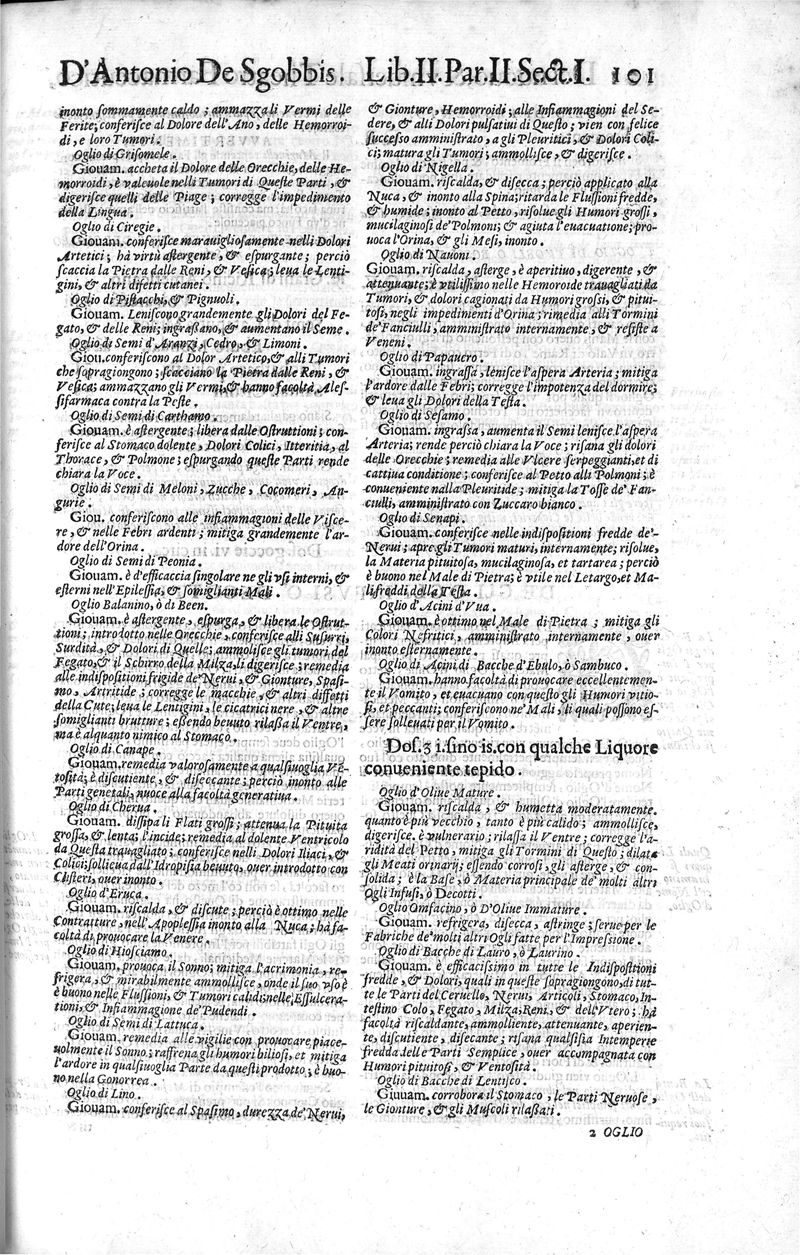 D'Antonio De Sgobbis. Lib.II.Par.II.Sect.I. 101
inonto sommamente caldo; ammazza li Vermi delle
Ferite; conferisce al Dolore dell'Ano, delle Hemorroi-
di, e loro Tumori.
Oglio di Grisomele.
Giouam. accheta il Dolore delle Orecchie, delle He-
morroidi, è valeuole nelli Tumori di Queste Parti, &
digerisce quelli delle Piage; corregge l'impedimento
della Lingua.
Oglio di Ciregie.
Giouam. conferisce marauigliosamente nelli Dolori
Artetici; hà virtù astergente, & espurgante; perciò
scaccia la Pietra dalle Reni, & Vesica; leua le Lenti-
gini, & altri difetti cutanei.
Oglio di Pistacchi, & Pignuoli.
Giouam. Leniscono grandemente gli Dolori del Fe-
gato, & delle Reni; ingrassano, & aumentano il Seme.
Oglio di Semi d'Aranzi, Cedro, & Limoni.
Giou. conferiscono al Dolor Artetico, & alli Tumori
che sopragiongono; scacciano la Pietra dalle Reni, &
Vesica; ammazzano gli Vermi, & hanno facoltà Ales-
sifarmaca contra la Peste.
Oglio di Semi di Carthamo.
Giouam. è astergente; libera dalle Ostruttioni; con-
ferisce al Stomaco dolente, Dolori Colici, Itteritia, al
Thorace, & Polmone; espurgando queste Parti rende
chiara la Voce.
Oglio di Semi di Meloni, Zucche, Cocomeri, An-
gurie.
Giou. conferiscono alle infiammagioni delle Visce-
re, & nelle Febri ardenti; mitiga grandemente l'ar-
dore dell'Orina.
Oglio di Semi di Peonia.
Giouam. è d'efficaccia singolare ne gli vsi interni, &
esterni nell'Epilessia, & somiglianti Mali.
Oglio Balanino, ò di Been.
Giouam. è astergente, espurga, & libera le Ostrut-
tioni; introdotto nelle Orecchie, conferisce alli Susurri,
Surdità, & Dolori di Quelle; ammolisce gli tumori del
Fegato, & il Schirro della Milza, li digerisce; remedia
alle indispositioni frigide de' Nerui, & Gionture, Spasi-
mo, Artritide; corregge le macchie, & altri diffetti
della Cute; leua le Lentigini, le cicatrici nere, & altre
somiglianti brutture; essendo beuuto rilassa il Ventre,
ma è alquanto nimico al Stomaco.
Oglio di Canape.
Giouam. remedia valorosamente a qualsiuoglia Vē-
tosità; è discutiente, & diseccante; perciò inonto alle
Parti genetali, nuoce alla facoltà generatiua.
Oglio di Cherua.
Giouam. dissipa li Flati grossi; attenua la Pituita
grossa, & lenta; l'incide; remedia al dolente Ventricolo
da Questa trauagliato; conferisce nelli Dolori Iliaci, &
Colici; sollieua dall'Idropisia beuuto, ouer introdotto con
Clisteri, ouer inonto.
Oglio d'Eruca.
Giouam. riscalda, & discute; perciò è ottimo nelle
Contratture, nell'Apoplessia inonto alla Nuca; hà fa-
coltà di prouocare la Venere.
Oglio di Hiosciamo.
Giouam. prouoca il Sonno; mitiga l'acrimonia, re-
frigera, & mirabilmente ammollisce, onde il suo vso è
è buono nelle Flussioni, & Tumori calidi; nelle Essulcera-
tioni, & Infiammagione de' Pudendi.
Oglio di Semi di Lattuca.
Giouam. remedia alle vigilie con prouocare piace-
uolmente il Sonno; raffrena gli humori biliosi, et mitiga
l'ardore in qualsiuoglia Parte da questi prodotto; è buo-
no nella Gonorrea.
Oglio di Lino.
Giouam. conferisce al Spasimo, durezza de' Nerui,
& Gionture, Hemorroidi; alle Infiammagioni del Se-
dere, & alli Dolori pulsatiui di Questo; vien con felice
successo amministrato, a gli Pleuritici, & Dolori Coli-
ci; matura gli Tumori; ammollisce, & digerisce.
Oglio di Nigella.
Giouam. riscalda, & disecca; perciò applicato alla
Nuca, & inonto alla Spina; ritarda le Flussioni fredde,
& humide; inonto al Petto, risolue gli Humori grossi,
mucilaginosi de' Polmoni; & agiuta l'euacuattone; pro-
uoca l'Orina, & gli Mesi, inonto.
Oglio di Nauoni.
Giouam. riscalda, asterge, è aperitiuo, digerente, &
attenuante; è vtilissimo nelle Hemoroide trauagliati da
Tumori, & dolori cagionati da Humori grossi, & pitui-
tosi, negli impedimenti d'Orina; rimedia alli Tormini
de' Fanciulli, amministrato internamente, & resiste a
Veneni.
Oglio di Papauero.
Giouam. ingrassa, lenisce l'aspera Arteria; mitiga
l'ardore dalle Febri; corregge l'impotenza del dormire,
& leua gli Dolori della Testa.
Oglio di Sesamo.
Giouam. ingrassa, aumenta il Semi lenisce l'aspera
Arteria; rende perciò chiara la Voce; risana gli dolori
delle Orecchie; remedia alle Vlcere serpeggianti, et di
cattiua conditione; conferisce al Petto alli Polmoni; è
conueniente nalla Pleuritide; mitiga la Tosse de' Fan-
ciulli, amministrato con Zuccaro bianco.
Oglio di Senapi.
Giouam. conferisce nelle indispositioni fredde de'
Nerui; apre gli Tumori maturi, internamente; risolue,
la Materia pituitosa, mucilaginosa, et tartarea; perciò
è buono nel Male di Pietra; è vtile nel Letargo, et Ma-
li freddi della Testa.
Oglio d'Acini d'Vua.
Giouam. è ottimo nel Male di Pietra; mitiga gli
Colori Nefritici, amministrato internamente, ouer
inonto esternamente.
Oglio di Acini di Bacche d'Ebulo, ò Sambuco.
Giouam. hanno facoltà di prouocare eccellentemen-
te il Vomito, et euacuano con questo gli Humori vitio-
si, et peccanti; conferiscono ne' Mali, li quali possono es-
sere solleuati per il Vomito.
Dos. ʒ i. sino is. con qualche Liquore
conueniente tepido.
Oglio d'Oliue Mature.
Giouam. riscalda, & humetta moderatamente.
quanto è più vecchio, tanto è più calido; ammollisce,
digerisce. è vulnerario; rilassa il Ventre; corregge l'a-
ridità del Petto, mitiga gli Tormini di Questo; dilata
gli Meati orinarij; essendo corrosi, gli asterge, & con-
solida; è la Base, ò Materia principale de' molti altri
Ogli Infusi, ò Decotti.
Oglio Omfacino, ò D'Oliue Immature.
Giouam. refrigera, disecca, astringe; serue per le
Fabriche de' molti altri Ogli fatte per l'Impressione.
Oglio di Bacche di Lauro, ò Laurino.
Giouam. è efficacissimo in tutte le Indispositioni
fredde, & Dolori, quali in queste sopragiongono, di tut-
te le Parti del Ceruello, Nerui, Articoli, Stomaco, In-
testino Colo, Fegato, Milza, Reni, & dell'Vtero; hà
facoltà riscaldante, ammolliente, attenuante, aperien-
te, discutiente, disecante; risana qualsisia Intemperie
fredda delle Parti Semplice, ouer accompagnata con
Humori pituitosi, & Ventosità.
Oglio di Bacche di Lentisco.
Giuuam. corrobora il Stomaco, le Parti Neruose,
le Gionture, & gli Muscoli rilassati.
2 OGLIO